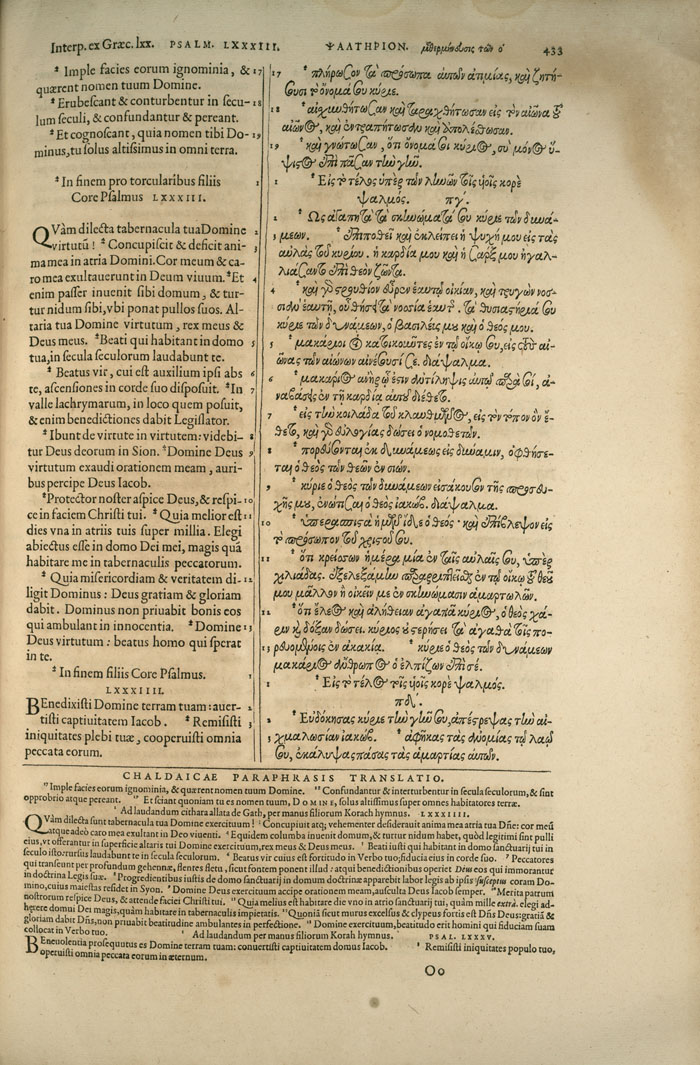 Interp. ex Græc. lxx. PSALM. LXXXIII. ΨΑΛΤΗΡΙΟΝ. 433
* Imple facies eorum ignominia, & 17
quærent nomen tuum Domine.
* Erubescant & conturbentur in secu- 18
lum seculi, & confundantur & pereant.
* Et cognoscant, quia nomen tibi Do- 19
minus, tu solus altissimus in omni terra.
* In finem pro torcularibus filiis 1
Core Psalmus LXXXIII.
QVàm dilecta tabernacula tua Domine 2
virtutū! * Concupiscit & deficit ani- 3
ma mea in atria Domini. Cor meum & ca-
ro mea exultauerunt in Deum viuum. * Et 4
enim passer inuenit sibi domum, & tur-
tur nidum sibi, vbi ponat pullos suos. Al-
taria tua Domine virtutum, rex meus &
Deus meus. * Beati qui habitant in domo 5
tua, in secula seculorum laudabunt te.
* Beatus vir, cui est auxilium ipsi abs 6
te, ascensiones in corde suo disposuit. * In 7
valle lachrymarum, in loco quem posuit,
& enim benedictiones dabit Legislator.
* Ibunt de virtute in virtutem: videbi- 8
tur Deus deorum in Sion. * Domine Deus 9
virtutum exaudi orationem meam, auri-
bus percipe Deus Iacob.
* Protector noster aspice Deus, & respi- 10
ce in faciem Christi tui. * Quia melior est 11
dies vna in atriis tuis super millia. Elegi
abiectus esse in domo Dei mei, magis quā
habitare me in tabernaculis peccatorum.
* Quia misericordiam & veritatem di- 12
ligit Dominus: Deus gratiam & gloriam
dabit. Dominus non priuabit bonis eos
qui ambulant in innocentia. * Domine 13
Deus virtutum: beatus homo qui sperat
in te.
* In finem filiis Core Psalmus. 1
LXXXIIII.
BEnedixisti Domine terram tuam: auer- 2
tisti captiuitatem Iacob. * Remisisti 3
iniquitates plebi tuæ, cooperuisti omnia
peccata eorum.
17 * πλήρωσον τὰ πρόσωπα αὐτῶν ἀτιμίας, καὶ ζητή-
σουσι τὸ ὄνομά σου κύριε.
18 * αἰσχυνθήτωσαν καὶ ταραχθήτωσαν εἰς τὸν αἰῶνα τοῦ
αἰῶνος, καὶ ἐντραπήτωσαν καὶ ἀπολέσθωσαν.
19 * καὶ γνώτωσαν, ὅτι ὄνομά σοι κύριος, σὺ μόνος ὕ-
ψιστος ἐπὶ πᾶσαν τὴν γῆν.
1 * Εἰς τὸ τέλος ὑπὲρ τῶν ληνῶν τοῖς υἱοῖς κορὲ
ψαλμός. πγʹ.
2 * Ως ἀγαπητὰ τὰ σκηνώματά σου κύριε τῶν δυνά-
3 μεων. * ἐπιποθεῖ καὶ ἐκλείπει ἡ ψυχή μου εἰς τὰς
αὐλὰς τοῦ κυρίου. ἡ καρδία μου καὶ ἡ σάρξ μου ἠγαλ-
λιάσαντο ἐπὶ θεὸν ζῶντα.
4 * καὶ γὰρ στρουθίον εὗρεν ἑαυτῷ οἰκίαν, καὶ τρυγὼν νοσ-
σιὰν ἑαυτῇ, οὗ θήσει τὰ νοσσία ἑαυτῆς. τὰ θυσιαστήριά σου
κύριε τῶν δυνάμεων, ὁ βασιλεύς μου καὶ ὁ θεός μου.
5 * μακάριοι οἱ κατοικοῦντες ἐν τῷ οἴκῳ σου, εἰς τοὺς αἰ-
ῶνας τῶν αἰώνων αἰνέσουσί σε. διάψαλμα.
6 * μακάριος ἀνὴρ ᾧ ἐστιν ἀντίληψις αὐτῷ παρὰ σοί, ἀ-
ναβάσεις ἐν τῇ καρδίᾳ αὐτοῦ διέθετο.
7 * εἰς τὴν κοιλάδα τοῦ κλαυθμῶνος, εἰς τὸν τόπον ὃν ἔ-
θετο, καὶ γὰρ εὐλογίας δώσει ὁ νομοθετῶν.
8 * πορεύσονται ἐκ δυνάμεως εἰς δύναμιν, ὀφθήσε-
ται ὁ θεὸς τῶν θεῶν ἐν σιών.
9 * κύριε ὁ θεὸς τῶν δυνάμεων εἰσάκουσον τῆς προσευ-
χῆς μου, ἐνώτισαι ὁ θεὸς ἰακώβ. διάψαλμα.
10 * ὑπερασπιστὰ ἡμῶν ἴδε ὁ θεὸς· καὶ ἐπίβλεψον εἰς
τὸ πρόσωπον τοῦ χριστοῦ σου.
11 * ὅτι κρείσσων ἡμέρα μία ἐν ταῖς αὐλαῖς σου, ὑπὲρ
χιλιάδας. ἐξελεξάμην παραρριπτεῖσθαι ἐν τῷ οἴκῳ τοῦ θεοῦ
μου μᾶλλον ἢ οἰκεῖν με ἐν σκηνώμασιν ἁμαρτωλῶν.
12 * ὅτι ἔλεος καὶ ἀλήθειαν ἀγαπᾷ κύριος, ὁ θεὸς χά-
ριν καὶ δόξαν δώσει. κύριος οὐ στερήσει τὰ ἀγαθὰ τοῖς πο-
13 ρευομένοις ἐν ἀκακίᾳ. * κύριε ὁ θεὸς τῶν δυνάμεων
μακάριος ἄνθρωπος ὁ ἐλπίζων ἐπὶ σέ.
1 * Εἰς τὸ τέλος τοῖς υἱοῖς κορὲ ψαλμός.
πδʹ.
2 * Εὐδόκησας κύριε τὴν γῆν σου, ἀπέστρεψας τὴν αἰ-
3 χμαλωσίαν ἰακώβ. * ἀφῆκας τὰς ἀνομίας τῷ λαῷ
σου, ἐκάλυψας πάσας τὰς ἁμαρτίας αὐτῶν.
CHALDAICAE PARAPHRASIS TRANSLATIO.
17 Imple facies eorum ignominia, & quærent nomen tuum Domine. 18 Confundantur & interturbentur in secula seculorum, & sint
opprobrio atque pereant. 19 Et sciant quoniam tu es nomen tuum, DOMINE, solus altissimus super omnes habitatores terræ.
1 Ad laudandum cithara allata de Gath, per manus filiorum Korach hymnus. LXXXIIII.
QVàm dilecta sunt tabernacula tua Domine exercituum! 3 Concupiuit atq; vehementer desiderauit anima mea atria tua Dñe: cor meū
atque adeò caro mea exultant in Deo viuenti. 4 Equidem columba inuenit domum, & turtur nidum habet, quòd legitimi sunt pulli
eius, vt offerantur in superficie altaris tui Domine exercituum, rex meus & Deus meus. 5 Beati iusti qui habitant in domo sanctuarij tui in
seculo isto: rursus laudabunt te in secula seculorum. 6 Beatus vir cuius est fortitudo in Verbo tuo; fiducia eius in corde suo. 7 Peccatores
qui transeunt per profundum gehennæ, flentes fletu, sicut fontem ponent illud: atqui benedictionibus operiet Deus eos qui immorantur
in doctrina Legis suæ. 8 Progredientibus iustis de domo sanctuarij in domum doctrinæ apparebit labor legis ab ipsis susceptus coram Do-
mino, cuius maiestas residet in Syon. 9 Domine Deus exercituum accipe orationem meam, ausculta Deus Iacob semper. 10 Merita patrum
nostrorum respice Deus, & attende faciei Christi tui. 11 Quia melius est habitare die vno in atrio sanctuarij tui, quàm mille extrà. elegi ad-
hærere domui Dei magis, quàm habitare in tabernaculis impietatis. 12 Quoniā sicut murus excelsus & clypeus fortis est Dñs Deus: gratiā &
gloriam dabit Dñs, non priuabit beatitudine ambulantes in perfectione. 13 Domine exercituum, beatitudo erit homini qui fiduciam suam
collocat in Verbo tuo. 1 Ad laudandum per manus filiorum Korah hymnus. PSAL. LXXXV.
BEneuolentia prosequutus es Domine terram tuam: conuertisti captiuitatem domus Iacob. 3 Remisisti iniquitates populo tuo,
operuisti omnia peccata eorum in æternum.
Oo